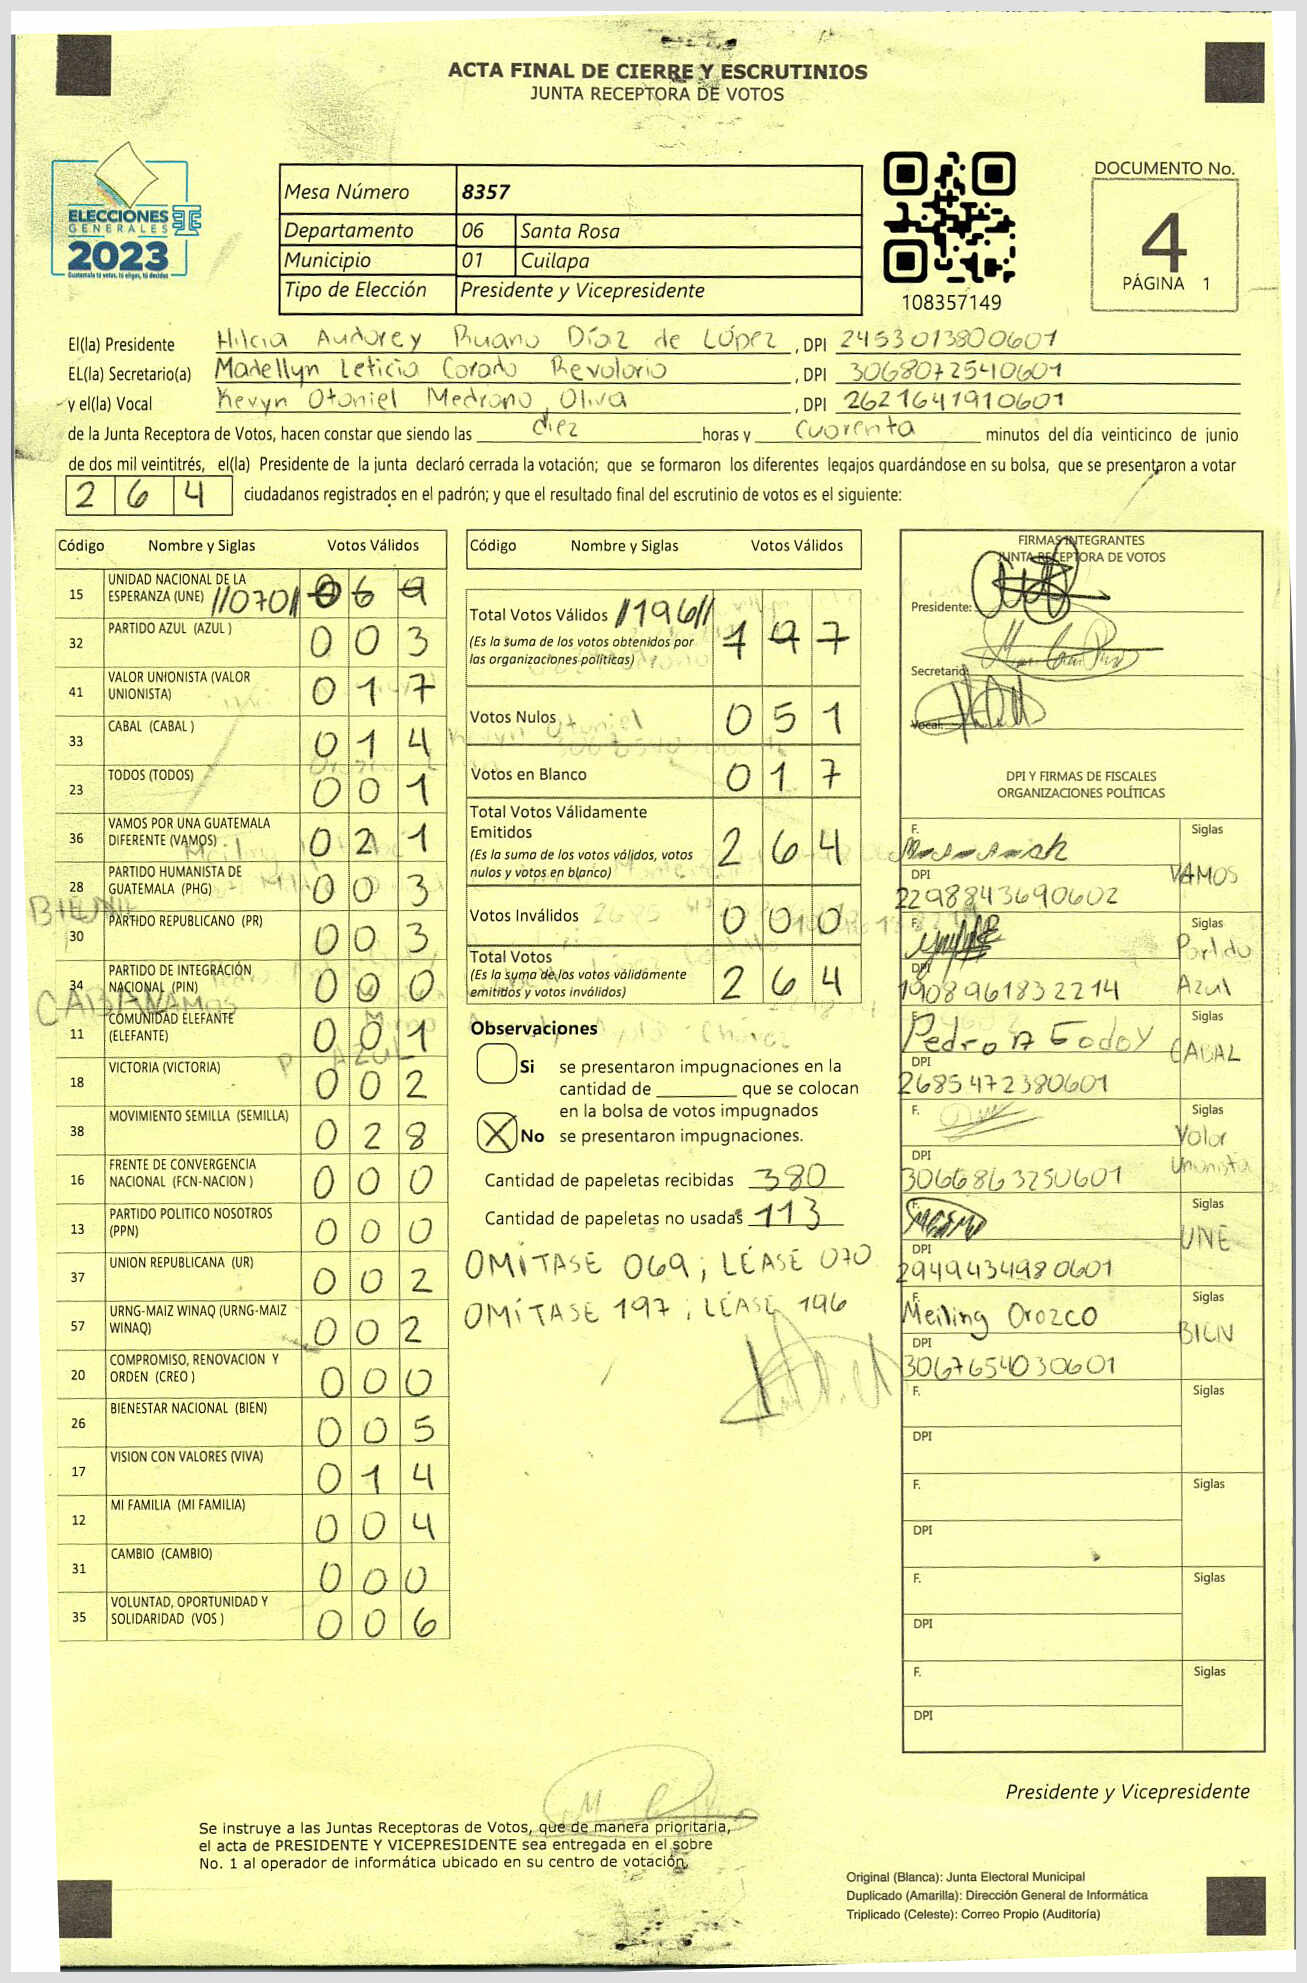 ACTA FINAL DE CIERRE Y ESCRUTINIOS
JUNTA RECEPTORA DE VOTOS
ELECCIONES
GENERALES
2023
Guatemala tú votas, tú eliges, tú decides
Mesa Número 8357
Departamento 06 Santa Rosa
Municipio 01 Cuilapa
Tipo de Elección Presidente y Vicepresidente
108357149
DOCUMENTO No.
4
PÁGINA 1
El(la) Presidente Hilcia Audorey Ruano Díaz de López, DPI 2453013800601
EL(la) Secretario(a) Madellyn Leticia Corado Revolorio, DPI 3068072540601
y el(la) Vocal Kevyn Otoniel Medrano Oliva, DPI 2621641910601
de la Junta Receptora de Votos, hacen constar que siendo las diez horas y cuarenta minutos del día veinticinco de junio
de dos mil veintitrés, el(la) Presidente de la junta declaró cerrada la votación; que se formaron los diferentes legajos guardándose en su bolsa, que se presentaron a votar
264 ciudadanos registrados en el padrón; y que el resultado final del escrutinio de votos es el siguiente:
Código Nombre y Siglas Votos Válidos
15 UNIDAD NACIONAL DE LA ESPERANZA (UNE) //070// 069
32 PARTIDO AZUL (AZUL ) 003
41 VALOR UNIONISTA (VALOR UNIONISTA) 017
33 CABAL (CABAL ) 014
23 TODOS (TODOS) 001
36 VAMOS POR UNA GUATEMALA DIFERENTE (VAMOS) 021
28 PARTIDO HUMANISTA DE GUATEMALA (PHG) 003
30 PARTIDO REPUBLICANO (PR) 003
34 PARTIDO DE INTEGRACIÓN NACIONAL (PIN) 000
11 COMUNIDAD ELEFANTE (ELEFANTE) 001
18 VICTORIA (VICTORIA) 002
38 MOVIMIENTO SEMILLA (SEMILLA) 028
16 FRENTE DE CONVERGENCIA NACIONAL (FCN-NACION ) 000
13 PARTIDO POLITICO NOSOTROS (PPN) 000
37 UNION REPUBLICANA (UR) 002
57 URNG-MAIZ WINAQ (URNG-MAIZ WINAQ) 002
20 COMPROMISO, RENOVACION Y ORDEN (CREO ) 000
26 BIENESTAR NACIONAL (BIEN) 005
17 VISION CON VALORES (VIVA) 014
12 MI FAMILIA (MI FAMILIA) 004
31 CAMBIO (CAMBIO) 000
35 VOLUNTAD, OPORTUNIDAD Y SOLIDARIDAD (VOS ) 006
Código Nombre y Siglas Votos Válidos
Total Votos Válidos //196// 197
(Es la suma de los votos obtenidos por
las organizaciones políticas)
Votos Nulos 051
Votos en Blanco 017
Total Votos Válidamente
Emitidos 264
(Es la suma de los votos válidos, votos
nulos y votos en blanco)
Votos Inválidos 000
Total Votos 264
(Es la suma de los votos válidamente
emitidos y votos inválidos)
Observaciones
Si se presentaron impugnaciones en la
cantidad de ________ que se colocan
en la bolsa de votos impugnados
X No se presentaron impugnaciones.
Cantidad de papeletas recibidas 380
Cantidad de papeletas no usadas 113
OMÍTASE 069; LÉASE 070
OMÍTASE 197; LÉASE 196
FIRMAS INTEGRANTES
JUNTA RECEPTORA DE VOTOS
Presidente:
Secretario:
Vocal:
DPI Y FIRMAS DE FISCALES
ORGANIZACIONES POLÍTICAS
F. Siglas
DPI VAMOS
2298843690602
F. Siglas
DPI Partido Azul
1908961832214
F. Siglas
Pedro A Godoy CABAL
DPI
2685472380601
F. Siglas
DPI Valor Unionista
3066863250601
F. Siglas
DPI UNE
2949434980601
F. Siglas
Meiling Orozco BIEN
DPI
3067654030601
F. Siglas
DPI
F. Siglas
DPI
F. Siglas
DPI
F. Siglas
DPI
Presidente y Vicepresidente
Se instruye a las Juntas Receptoras de Votos, que de manera prioritaria,
el acta de PRESIDENTE Y VICEPRESIDENTE sea entregada en el sobre
No. 1 al operador de informática ubicado en su centro de votación.
Original (Blanca): Junta Electoral Municipal
Duplicado (Amarilla): Dirección General de Informática
Triplicado (Celeste): Correo Propio (Auditoría)